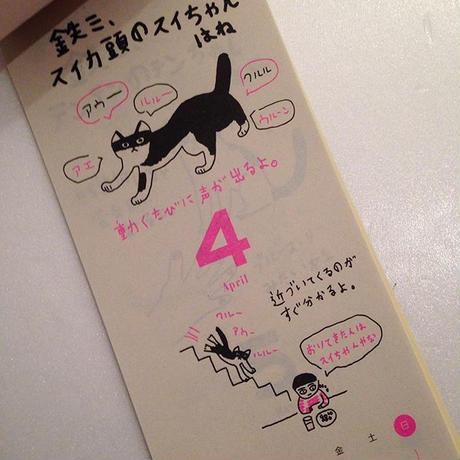 鉄ミ、
スイカ頭のスイちゃん
はね
アウー
ルルー
フルル
アエ
ウルーン
動くたびに声が出るよ。
4
April
近づいてくるのが
すぐ分かるよ。
クルー
アウー
ルルー
おりてきたんは
スイちゃんやな
金 土 日